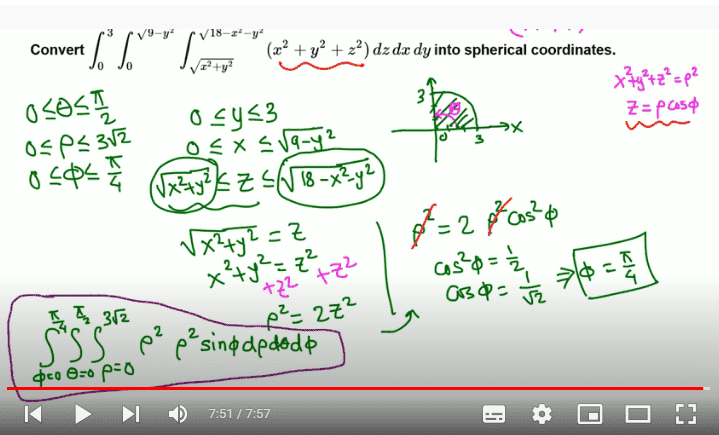 Convert ∫₀³ ∫₀^√(9-y²) ∫_√(x²+y²)^√(18-x²-y²) (x² + y² + z²) dz dx dy into spherical coordinates.
x²+y²+z² = ρ²
z = ρ cosφ
0 ≤ θ ≤ π/2
0 ≤ ρ ≤ 3√2
0 ≤ φ ≤ π/4
0 ≤ y ≤ 3
0 ≤ x ≤ √(9-y²)
√(x²+y²) ≤ z ≤ √(18-x²-y²)
3
0
3
x
√(x²+y²) = z
x²+y² = z²
+z² +z²
ρ² = 2z²
ρ² = 2 ρ² cos²φ
cos²φ = 1/2
cosφ = 1/√2 ⇒ φ = π/4
∫_φ=0^π/4 ∫_θ=0^π/2 ∫_ρ=0^3√2 ρ² ρ² sinφ dρ dθ dφ
7:51 / 7:57